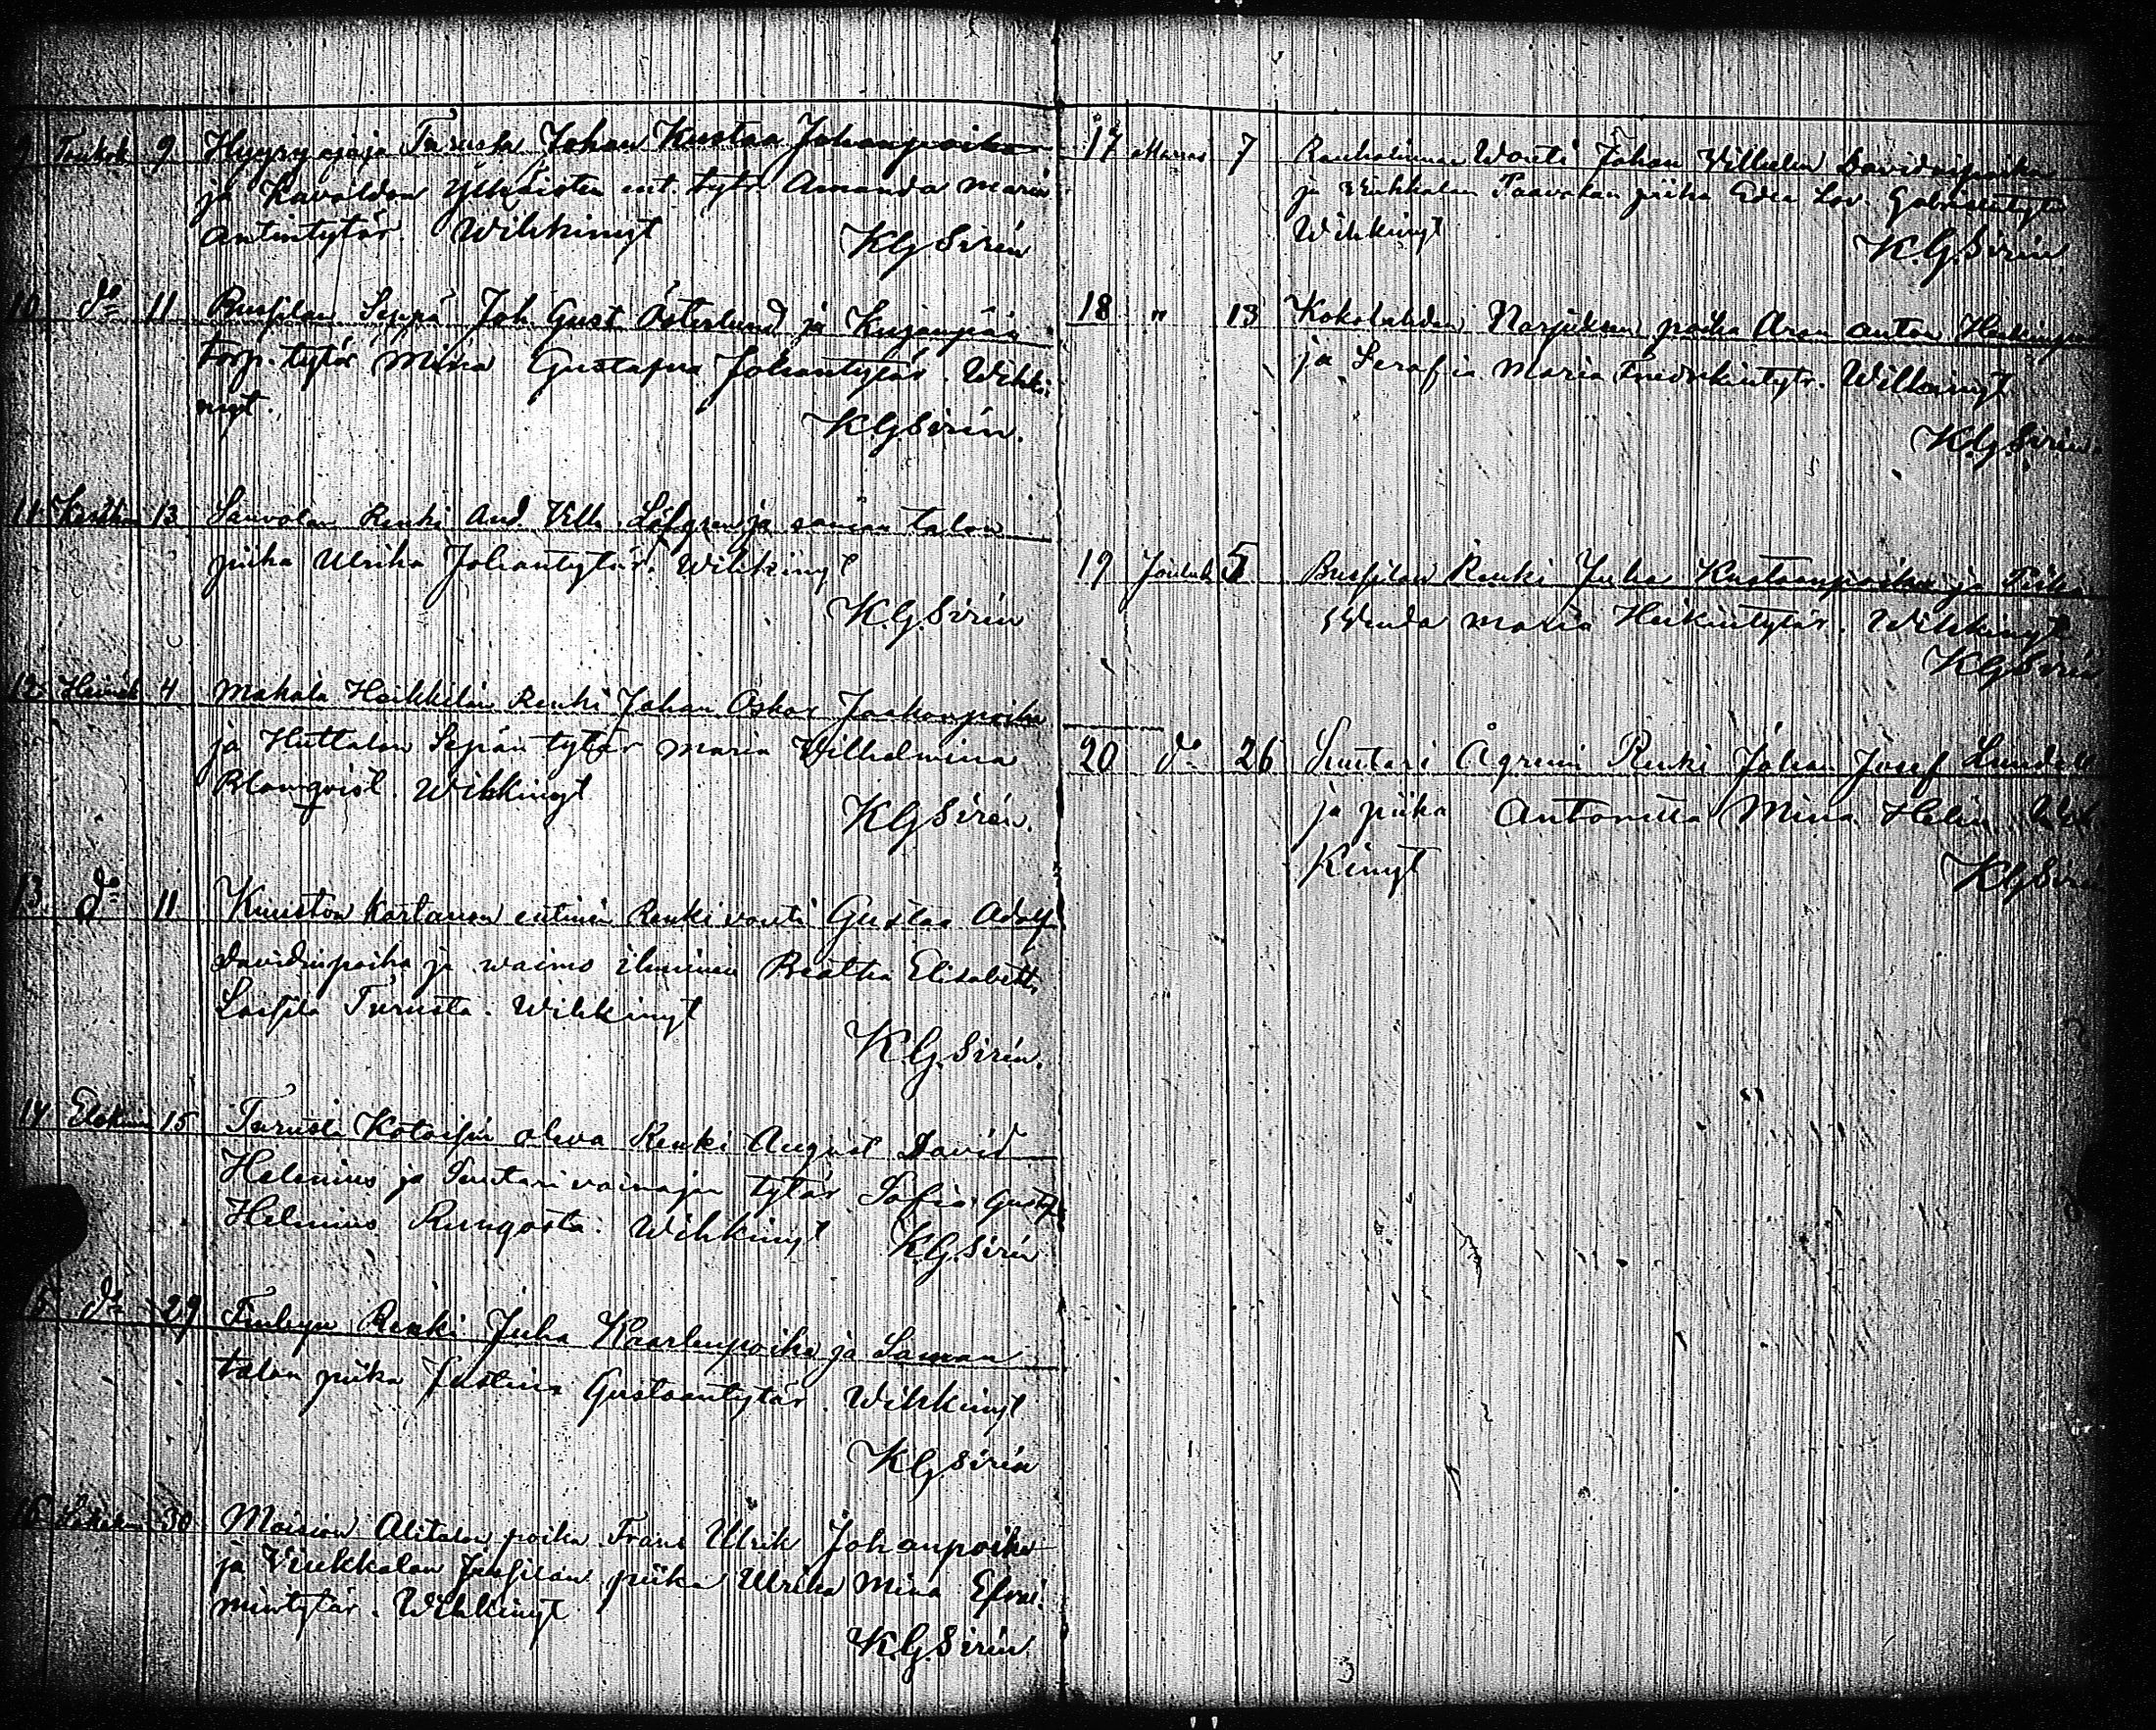 9 Toukok 9 Hyyryajaja Turusta Johan Kustaa Johanpoika
ja Kavaldon Ylhäisten ent. tytr Amanda Maria
Antintytär. Wihkinyt KG Sirén
10 do 11 Bussilan Seppä Joh Gust Österlund ja Kujanpään
torp. tytär Mina Gustafva Johantytär. Wihki-
nyt. KG Sirén.
11 Kesäkuu 13 Sauvolan Renki And. Vilh. Löfgren ja saman talon
piika Ulrika Johantytär. Wihkinyt
K.G. Sirén
12 Heinäk 4 Mahala Heikkilän Renki Johan Oskar Jaakonpoika
ja Huttalan Sepän tytär Maria Wilhelmina
Blomqvist. Wihkinyt KG Sirén.
13. do 11 Kuuston Kartanon entinen Renkivouti Gustaa Adolf
Davidinpoika ja waimo ihminen Beatha Elisabeth
Turusta. Wihkinyt
K.G. Sirén.
14 Elokuu 15 Turusta Kotoisin oleva Renki August David
Helenius ja Suutari vainajan tytär Sofia Gustf.
Helenius Rungosta. Wihkinyt K.G. Sirén
15 do 29 Renki Juha Kaarlenpoika ja Saman
talon piika Justina Gustaantytär. Wihkinyt
KG Sirén
16 30 Moision Alitalon poika Frans Ulrik Johanpoika
ja Viukkalan Jussilan piika Ulrika Mina Efrai-
mintytär. Wihkinyt
K.G. Sirén
17 Marras 7 Rauhalinnan Wouti Johan Vilhelm Davidinpoika
ja Viukkalan Paavolan piika Edla Lov. Gabrielintytr
Wihkinyt K.G. Sirén
18 " 13 poika Anton
ja Serafia Maria Fredrikintytr. Wihkinyt
K.G. Sirén.
19 Jouluk 5 Bussilan Renki Juha Kustaanpoika ja Piika
Wenda Maria Heikintytär. Wihkinyt
KG Sirén
20 do 26 Suutari Ågrenin Renki Johan Josef Lindell
ja piika Antonetta Mina Helin. Wih-
kinyt KG Sirén